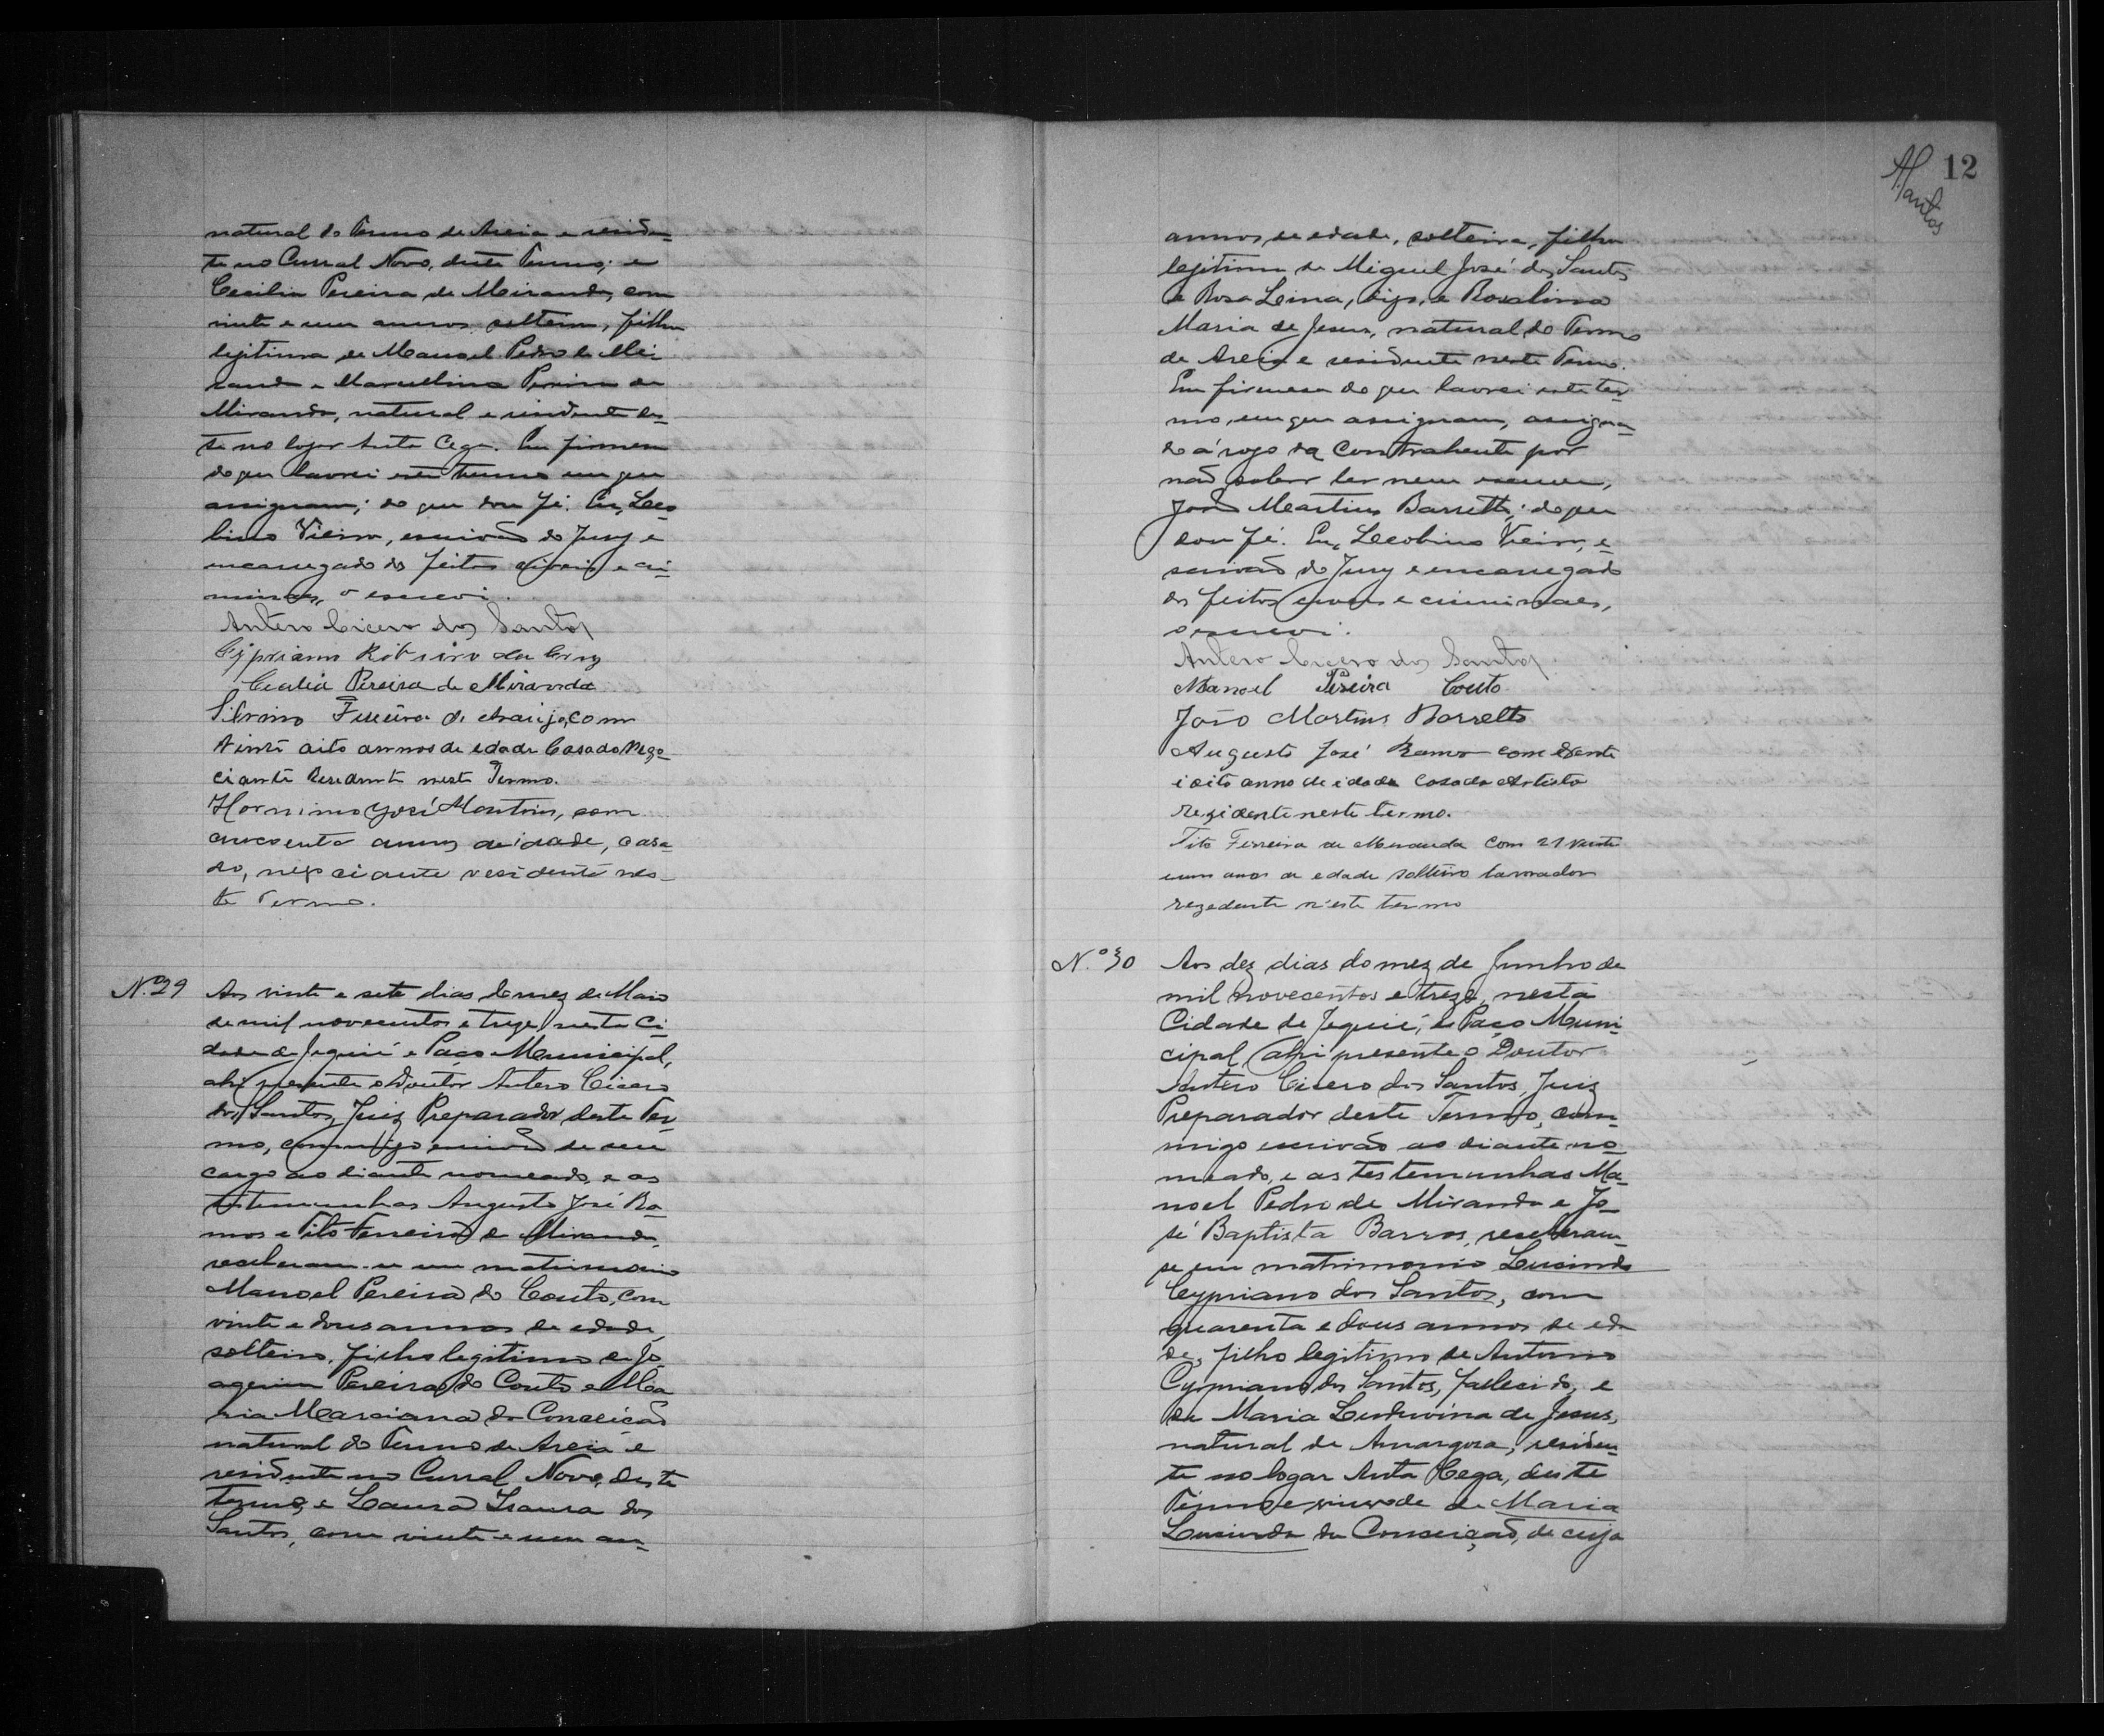 natural do Termo de Areia e residen-
te no Curral Novo, deste Termo; e
Cecilia Pereira de Miranda, com
vinte e um annos, solteira, filha
legitima de Manoel Pedro de Mi
randa e Marcellina Pereira de
Miranda, natural e residente des-
te no logar Anta Cega. Em firmesa
do que lavrei este termo em que
assignam; do que dou fé. Eu, Leo
lino Vieira, escrivão do Jury e
encarregado dos feitos civeis e cri
minaes, o escrevi.
Antero Cicero dos Santos
Cypriano Ribeiro da Cruz
Cecilia Pereira de Miranda
Silvino Ferreira de Araujo, com
Vinte oito annos de edade Casado Nego-
ciante Residente neste Termo.
José Martins, com
cincoenta annos de idade, casa-
do, negociante residente nes-
te Termo.
N. 29 Aos vinte e sete dias do mez de Maio
de mil novecentos e treze, nesta Ci-
dade de Jequié e Paço Municipal,
ahi presente o Doutor Antero Cicero
dos Santos, Juiz Preparador deste Ter-
mo, commigo escrivão de seu
cargo ao diante nomeado, e as
testemunhas Augusto José Ra-
mos e Tito Ferreira de Miranda,
receberam-se em matrimonio
Manoel Pereira do Couto, com
vinte e dous annos de edade,
solteiro, filho legitimo de Jo
aquim Pereira do Couto e Ma
ria Marciana da Conceição
natural do Termo de Areia e
residente no Curral Novo, deste
termo, e Laura Isaura dos
Santos, com vinte e um an-
12
A Santos
annos de edade, solteira, filha
legitima de Miguel José dos Santos
e Rosa Lina, digo, e Rosalina
Maria de Jesus, natural do Termo
de Areia e residente neste Termo.
Em firmesa do que lavrei este ter-
mo, em que assignam, assignan-
do á rogo da Contrahente por
não saber ler nem escrever,
João Martins Barretto; do que
dou fé. Eu, Leolino Vieira, e-
scrivão do Jury e encarregado
dos feitos civeis e criminaes,
o escrevi.
Antero Cicero dos Santos
Manoel Pereira Couto
João Martins Barretto
Augusto José Ramo com Vente
i oito anno de idade Casado Artista
Rezidente neste termo.
Tito Ferreira de Meranda com 21 vinte
e um anos de edade solteiro lavrador
rezedente n'este termo
N.º 30 Aos dez dias do mez de Junho de
mil novecentos e treze, nesta
Cidade de Jequié, e Paço Muni-
cipal, ahi presente o Doutor
Antero Cicero dos Santos, Juiz
Preparador deste Termo, com-
migo escrivão ao diante no-
meado, e as testemunhas Ma-
noel Pedro de Miranda e Jo-
sé Baptista Barros, receberam-
se em matrimonio Lucindo
Cypriano dos Santos, com
quarenta e dous annos de eda
de, filho legitimo de Antonio
Cypriano dos Santos, fallecido, e
de Maria Ludovina de Jesus,
natural de Amargosa, residen-
te no logar Anta Cega, deste
Termo e viuvo de Maria
Lucinda da Conceição, de cujo